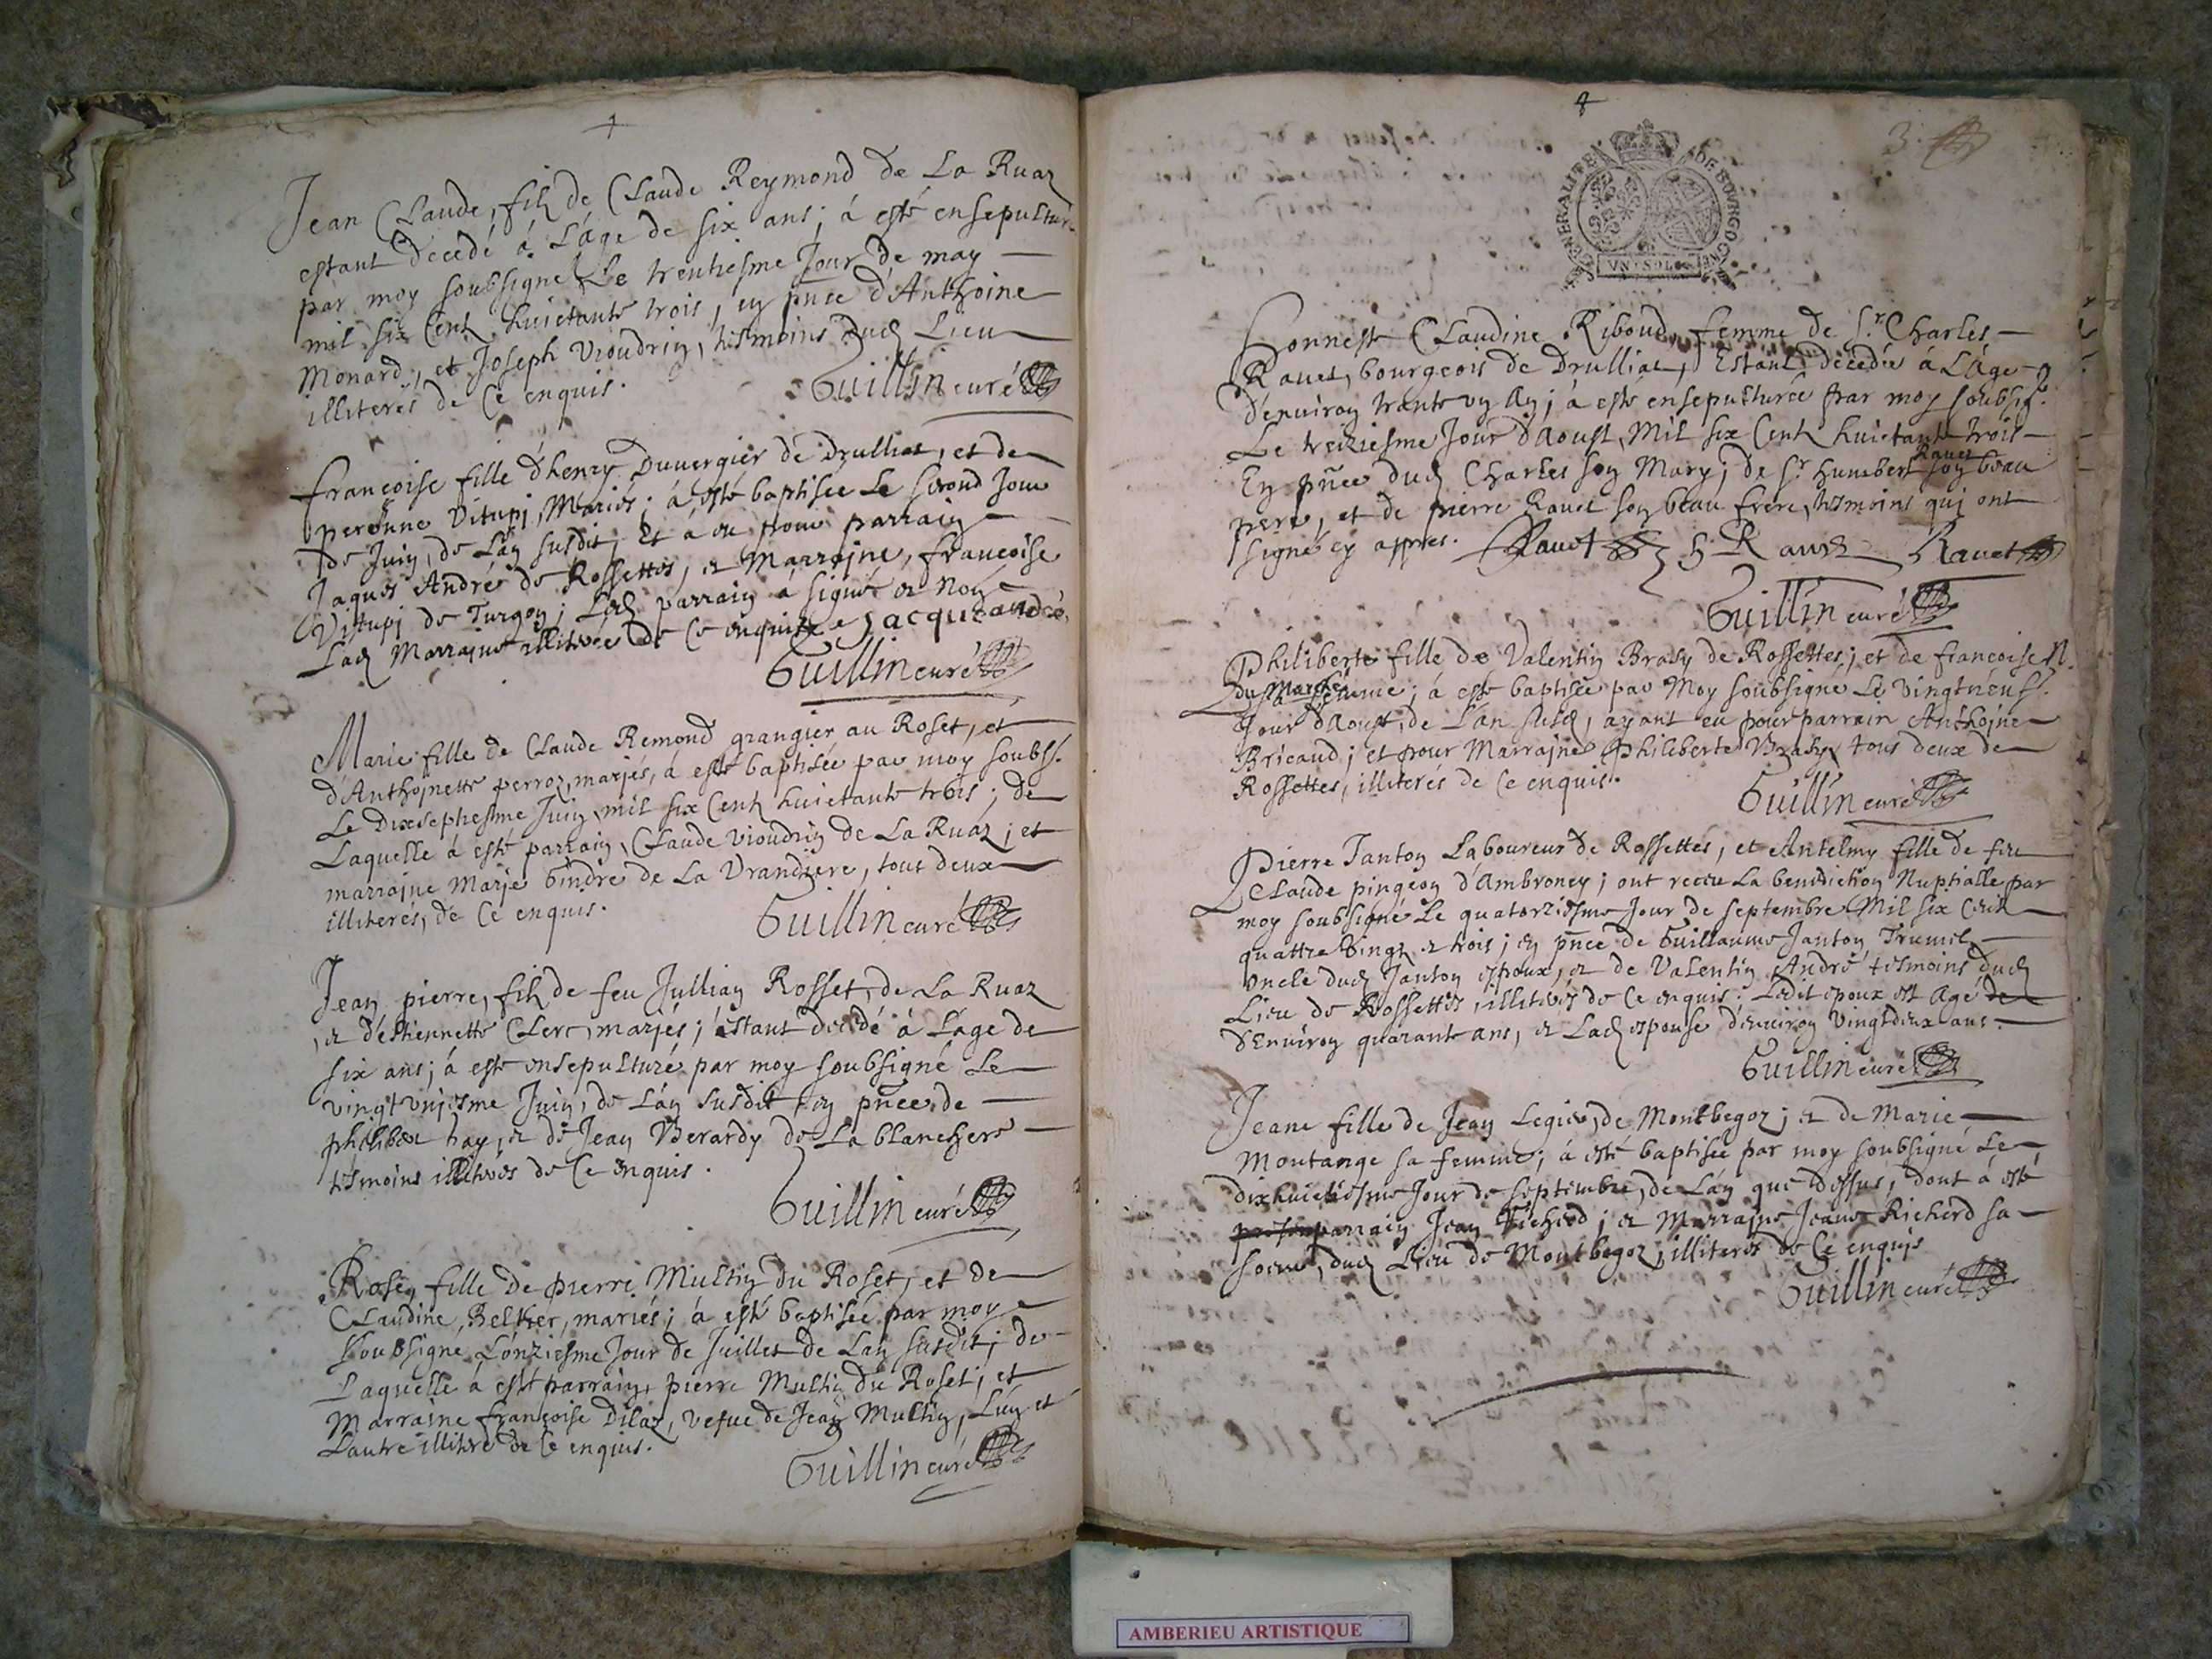 Jean Claude, filz de Claude Reymond de La Ruaz
estant décedé á L'áge de six ans; á esté ensepulturé
par moy soubsigné Le trentiesme Jour de may
mil six Centz huictante trois, en pñce d'Anthoine
Monard, et Joseph Vioudrin, tesmoins dud Lieu
illiterés de Ce enquis.
Guillin curé
françoise fille d'henry Duvergier de Drulliat, et de
peronne Vitupj, Mariés; á esté baptisée Le second Jour
de Juin, de L'án susdit; Et á eu pour parrain
Jaques André de Rossettes, et Marrajne, françoise
Vitupj de Turgon; Led parrain á signé et Non
Lad Marrajne illiterée de Ce enquise Jacque andré
Guillin curé
Marie fille de Claude Remond grangier au Roset, et
d'Anthojnette perroz, marjés, á esté baptisée par moy soubs.
Le Dixseptiesme Juin mil six Centz huictante trois; de
Laquelle á esté parrain, Claude vioudrin de La Ruáz; et
marrajne Marje Gindre de La Vrandiere, tout deux
illiterés, de Ce enquis.
Guillin curé
Jean pierre, filz de feu Jullian Rosset, de La Ruaz
et d'éstiennette Clerc, marjés; éstant decedé á L'áge de
six ans; á esté ensepulturé par moy soubsigné Le
vingtvnjesme Juin, de L'án susdit, en pñce de
philibert hay, et de Jean Berardy de La blanchere
tesmoins illiterés de Ce enquis.
Guillin curé
Rose, fille de pierre Miultin du Roset, et de
Claudine Belker, mariés; á esté baptisée par moy
soubsigné L'ónziesme Jour de Juillet de L'an susdit; de
Laquelle á esté parrain, pierre Multin du Roset; et
Marraine françoise Dilaz, vefue de Jean Multin, L'un et
L'autre illiteré de Ce enquis.
Guillin curé
3.
GENERALITE DE BOVRGOGNE
VN SOL
Honneste Claudine Riboud, femme de Sr. Charles
Rauet, bourgeois de Drulliat, Estant décedée á L'áge
d'enuiron trente vn An; á esté ensepulturée par moy soubsig.
Le treiziesme Jour d'Aoust, Mil six Centz huictante trois
En pñce dud Charles son Mary; de Sr. humbert Rauet son beau
pere, et de pierre Rauet son beau frere, tesmoins qui ont
signé cy appres. Rauet h Rauet Rauet
Guillin curé
Philiberte fille de Valentin Brasy de Rossettes; et de françoise N.
du Marche sa femme; á esté baptisée par Moy soubsigné Le vingtneuf.
Jour d'Aoust, de L'án susd, ayant eu pour parrain Anthojne
Bricaud; et pour Marrajne Philiberte Brasy, tous deux de
Rossettes, illiterés de Ce enquis.
Guillin curé
Pierre Janton Laboureur de Rossettes, et Antelmy fille de feu
Claude pingeon d'Ambroney; ont receu La benediction Nuptialle par
moy soubsigné Le quatorziesme Jour de septembre Mil six Centz
quattre Vingt et trois; en pñce de Guillaume Janton Trumil
Vncle dud Janton espoux, et de Valentin André tesmoins dud
Lieu de Rossettes, illiterés de Ce enquis. Ledit epoux est Agé de
d'Enuiron quarante ans, et Lad espouse d'enuiron Vingtdeux ans.
Guillin curé
Jeane fille de Jean Legier, de Montbegoz; et de Marie
Montange sa femme; á esté baptisée par moy soubsigné Le
dixhuictiesme Jour de septembre, de L'án que dessus; dont á esté
parrain Jean Richerd; et Marrajne Jeane Richerd sa
soeur, dud Lieu de Montbegoz, illiterés de Ce enquis
Guillin curé
AMBERIEU ARTISTIQUE